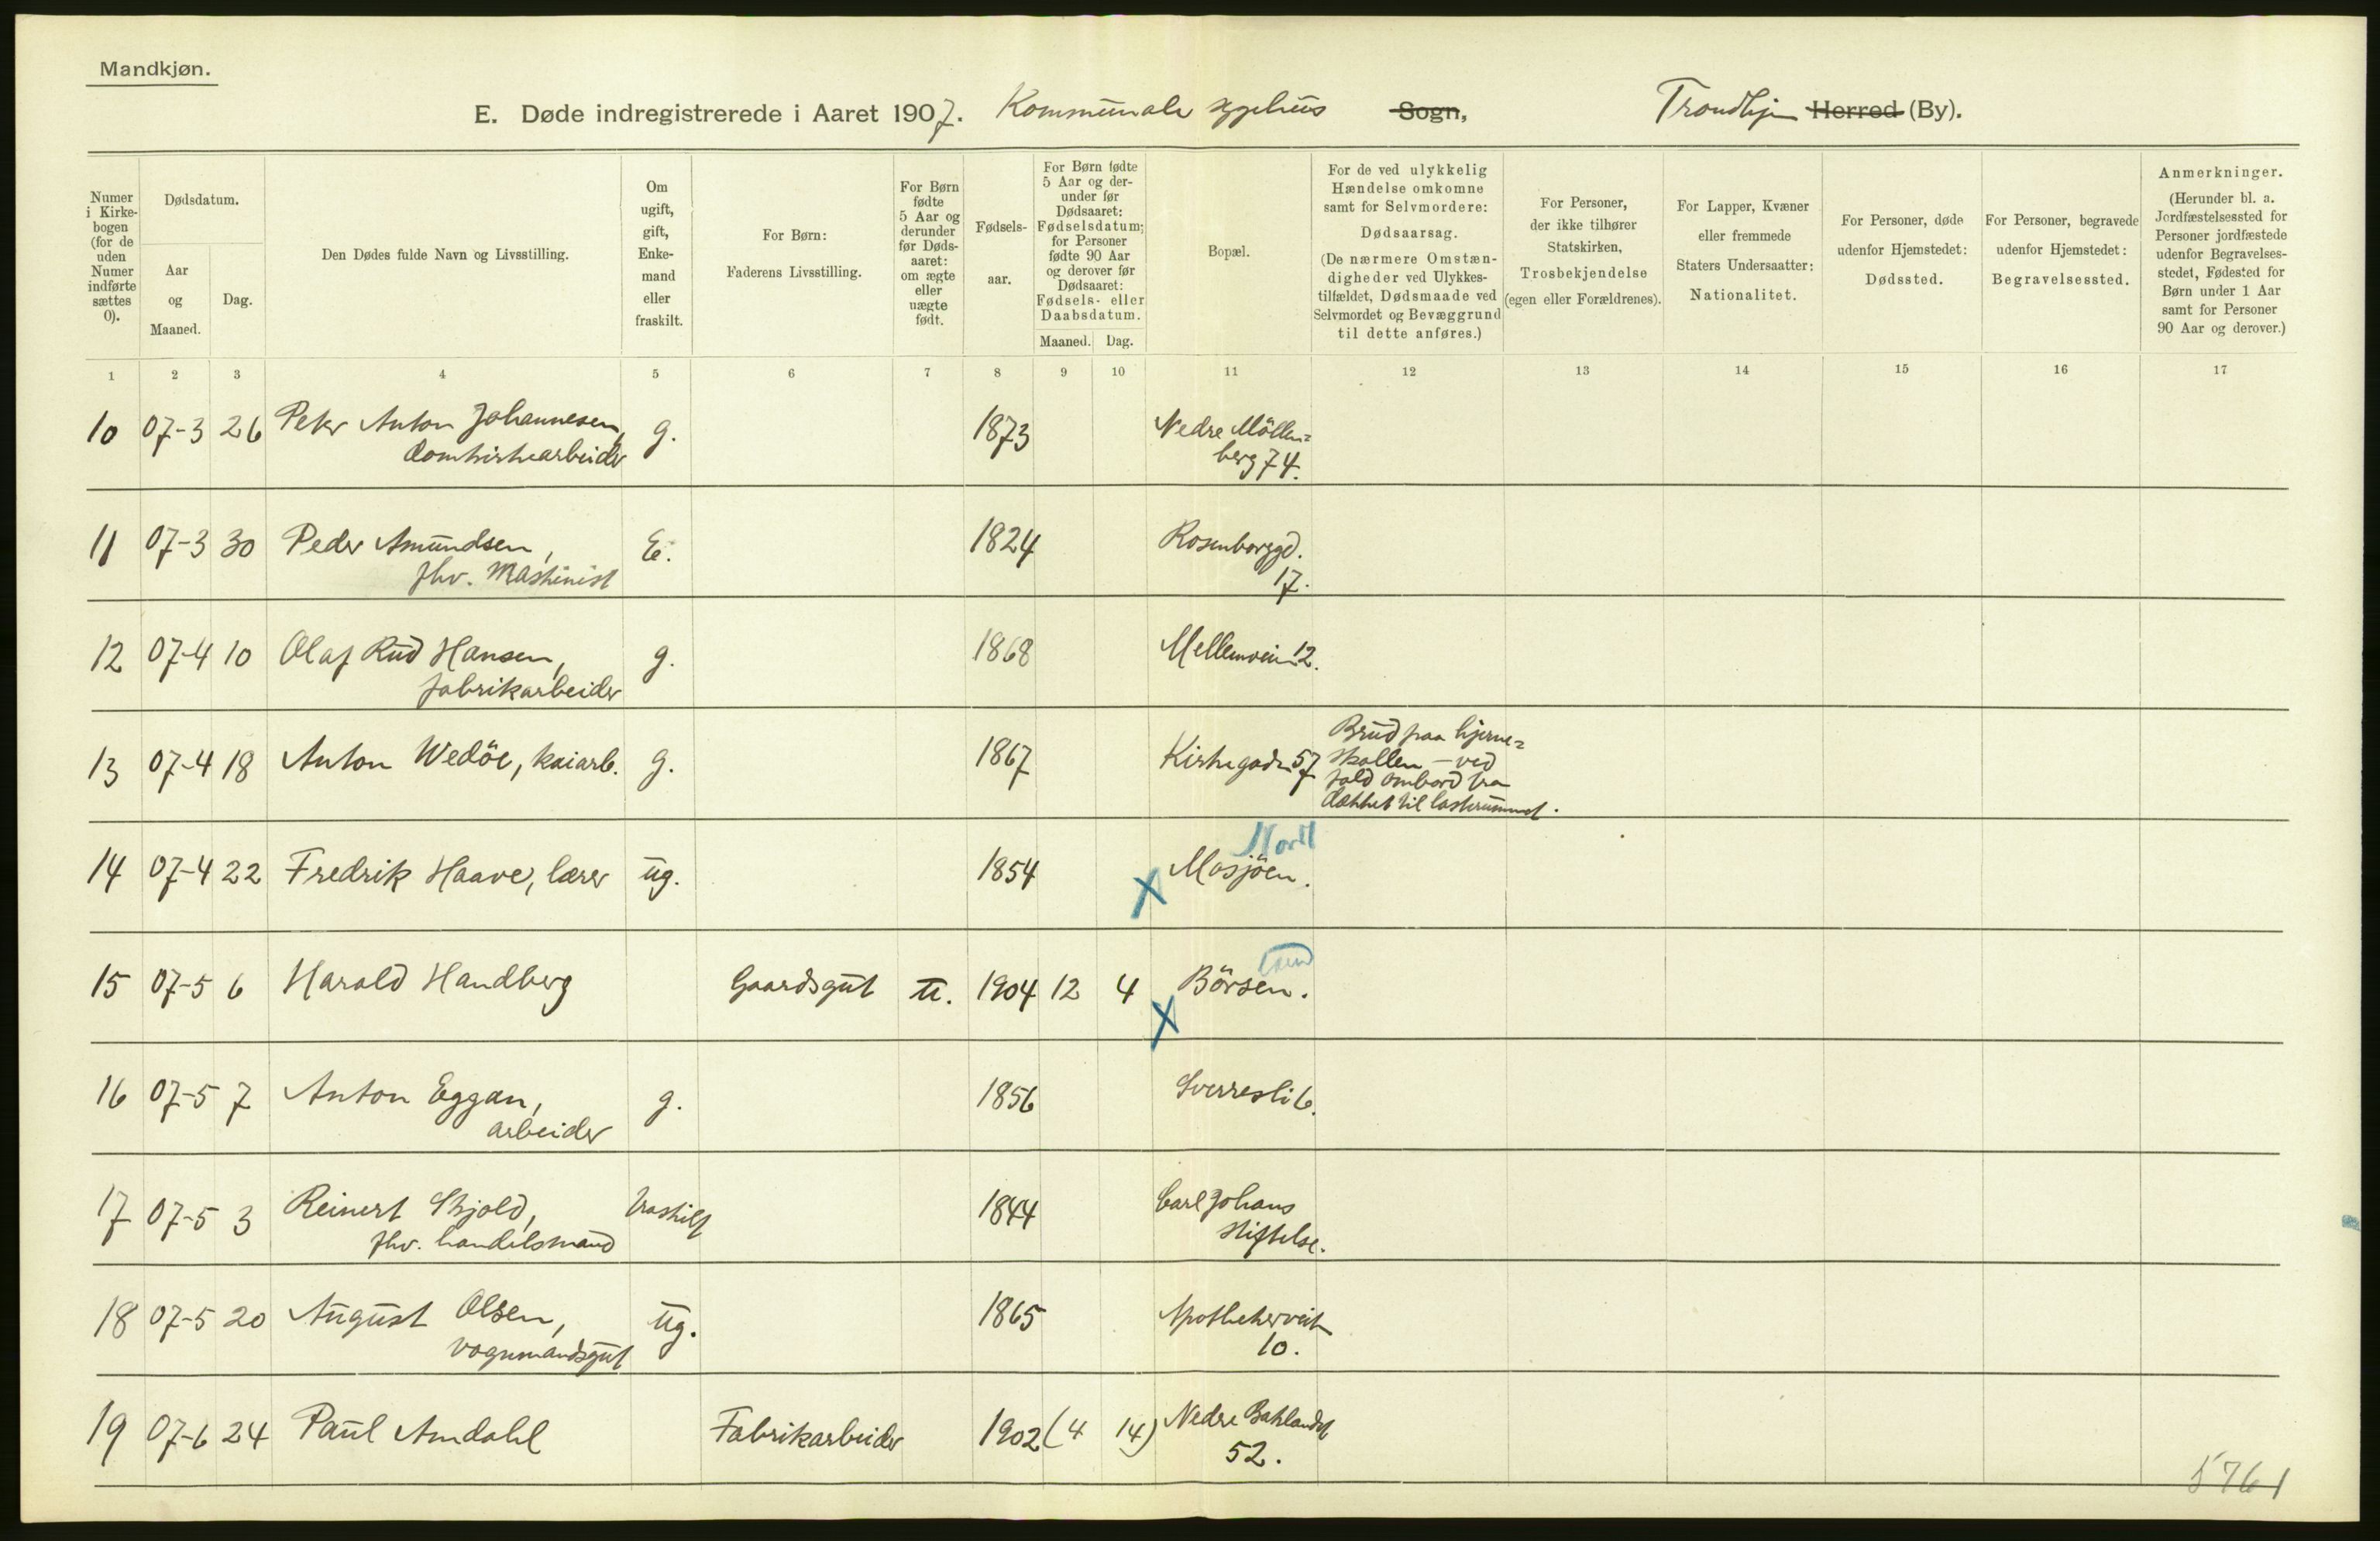 Mandkjøn.
E. Døde indregistrerede i Aaret 1907. Kommunale sygehus Sogn, Trondhjem Herred (By).
Numer i Kirkebogen (for de uden Numer indførte sættes 0).
Dødsdatum.
Aar og Maaned.
Dag.
Den Dødes fulde Navn og Livsstilling.
Om ugift, gift, Enkemand eller fraskilt.
For Børn: Faderens Livsstilling.
For Børn fødte 5 Aar og derunder før Dødsaaret: om ægte eller uægte født.
Fødselsaar.
For Børn fødte 5 Aar og derunder før Dødsaaret: Fødselsdatum; for Personer fødte 90 Aar og derover før Dødsaaret: Fødsels- eller Daabsdatum.
Maaned. Dag.
Bopæl.
For de ved ulykkelig Hændelse omkomne samt for Selvmordere: Dødsaarsag. (De nærmere Omstændigheder ved Ulykkestilfældet, Dødsmaade ved Selvmordet og Bevæggrund til dette anføres.)
For Personer, der ikke tilhører Statskirken, Trosbekjendelse (egen eller Forældrenes).
For Lapper, Kvæner eller fremmede Staters Undersaatter: Nationalitet.
For Personer, døde udenfor Hjemstedet: Dødssted.
For Personer, begravede udenfor Hjemstedet: Begravelsessted.
Anmerkninger. (Herunder bl. a. Jordfæstelsessted for Personer jordfæstede udenfor Begravelsesstedet, Fødested for Børn under 1 Aar samt for Personer 90 Aar og derover.)
1 2 3 4 5 6 7 8 9 10 11 12 13 14 15 16 17
10 07-3 26 Peter Anton Johannesen, g. 1873 Nedre Möllen=
domkirkearbeider berg 74.
11 07-3 30 Peder Amundsen, E. 1824 Rosenborggd.
fhv. Maskinist 17.
12 07-4 10 Olaf Rud Hansen, g. 1868 Mellemvein 12.
fabrikarbeider
13 07-4 18 Anton Wedöe, kaiarb. g. 1867 Kirkegaden 57
Brud paa hjerne=
skallen – ved
fald ombord fra
dækket til lasterummet.
Nordl
14 07-4 22 Fredrik Haave, lærer ug. 1854 X Mosjöen.
15 07-5 6 Harald Handberg Gaardsgut u. 1904 12 4 X Börsen.
16 07-5 7 Anton Eggan, g. 1856 Sverresli 6.
arbeider
17 07-5 3 Reinert Skjold, fraskilt 1844 Carl Johans
fhv. handelsmand stiftelse.
18 07-5 20 August Olsen, ug. 1865 Apothekerveiten
vognmandsgut 10.
19 07-6 24 Paul Amdahl Fabrikarbeider 1902 (4 14) Nedre Baklandet
52.
5761